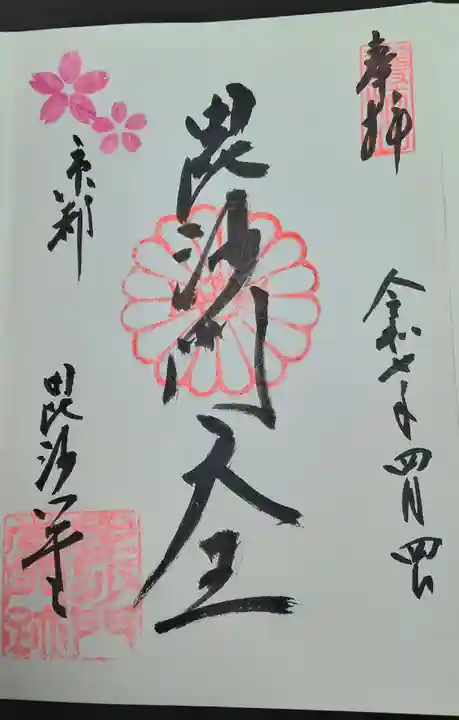 奉拝
令和七年四月四日
毘沙門天王
京都
毘沙門堂